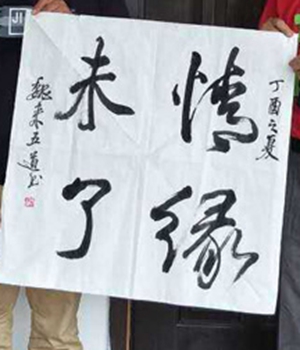 丁酉之夏
情缘
未了
魏来五道书
JI